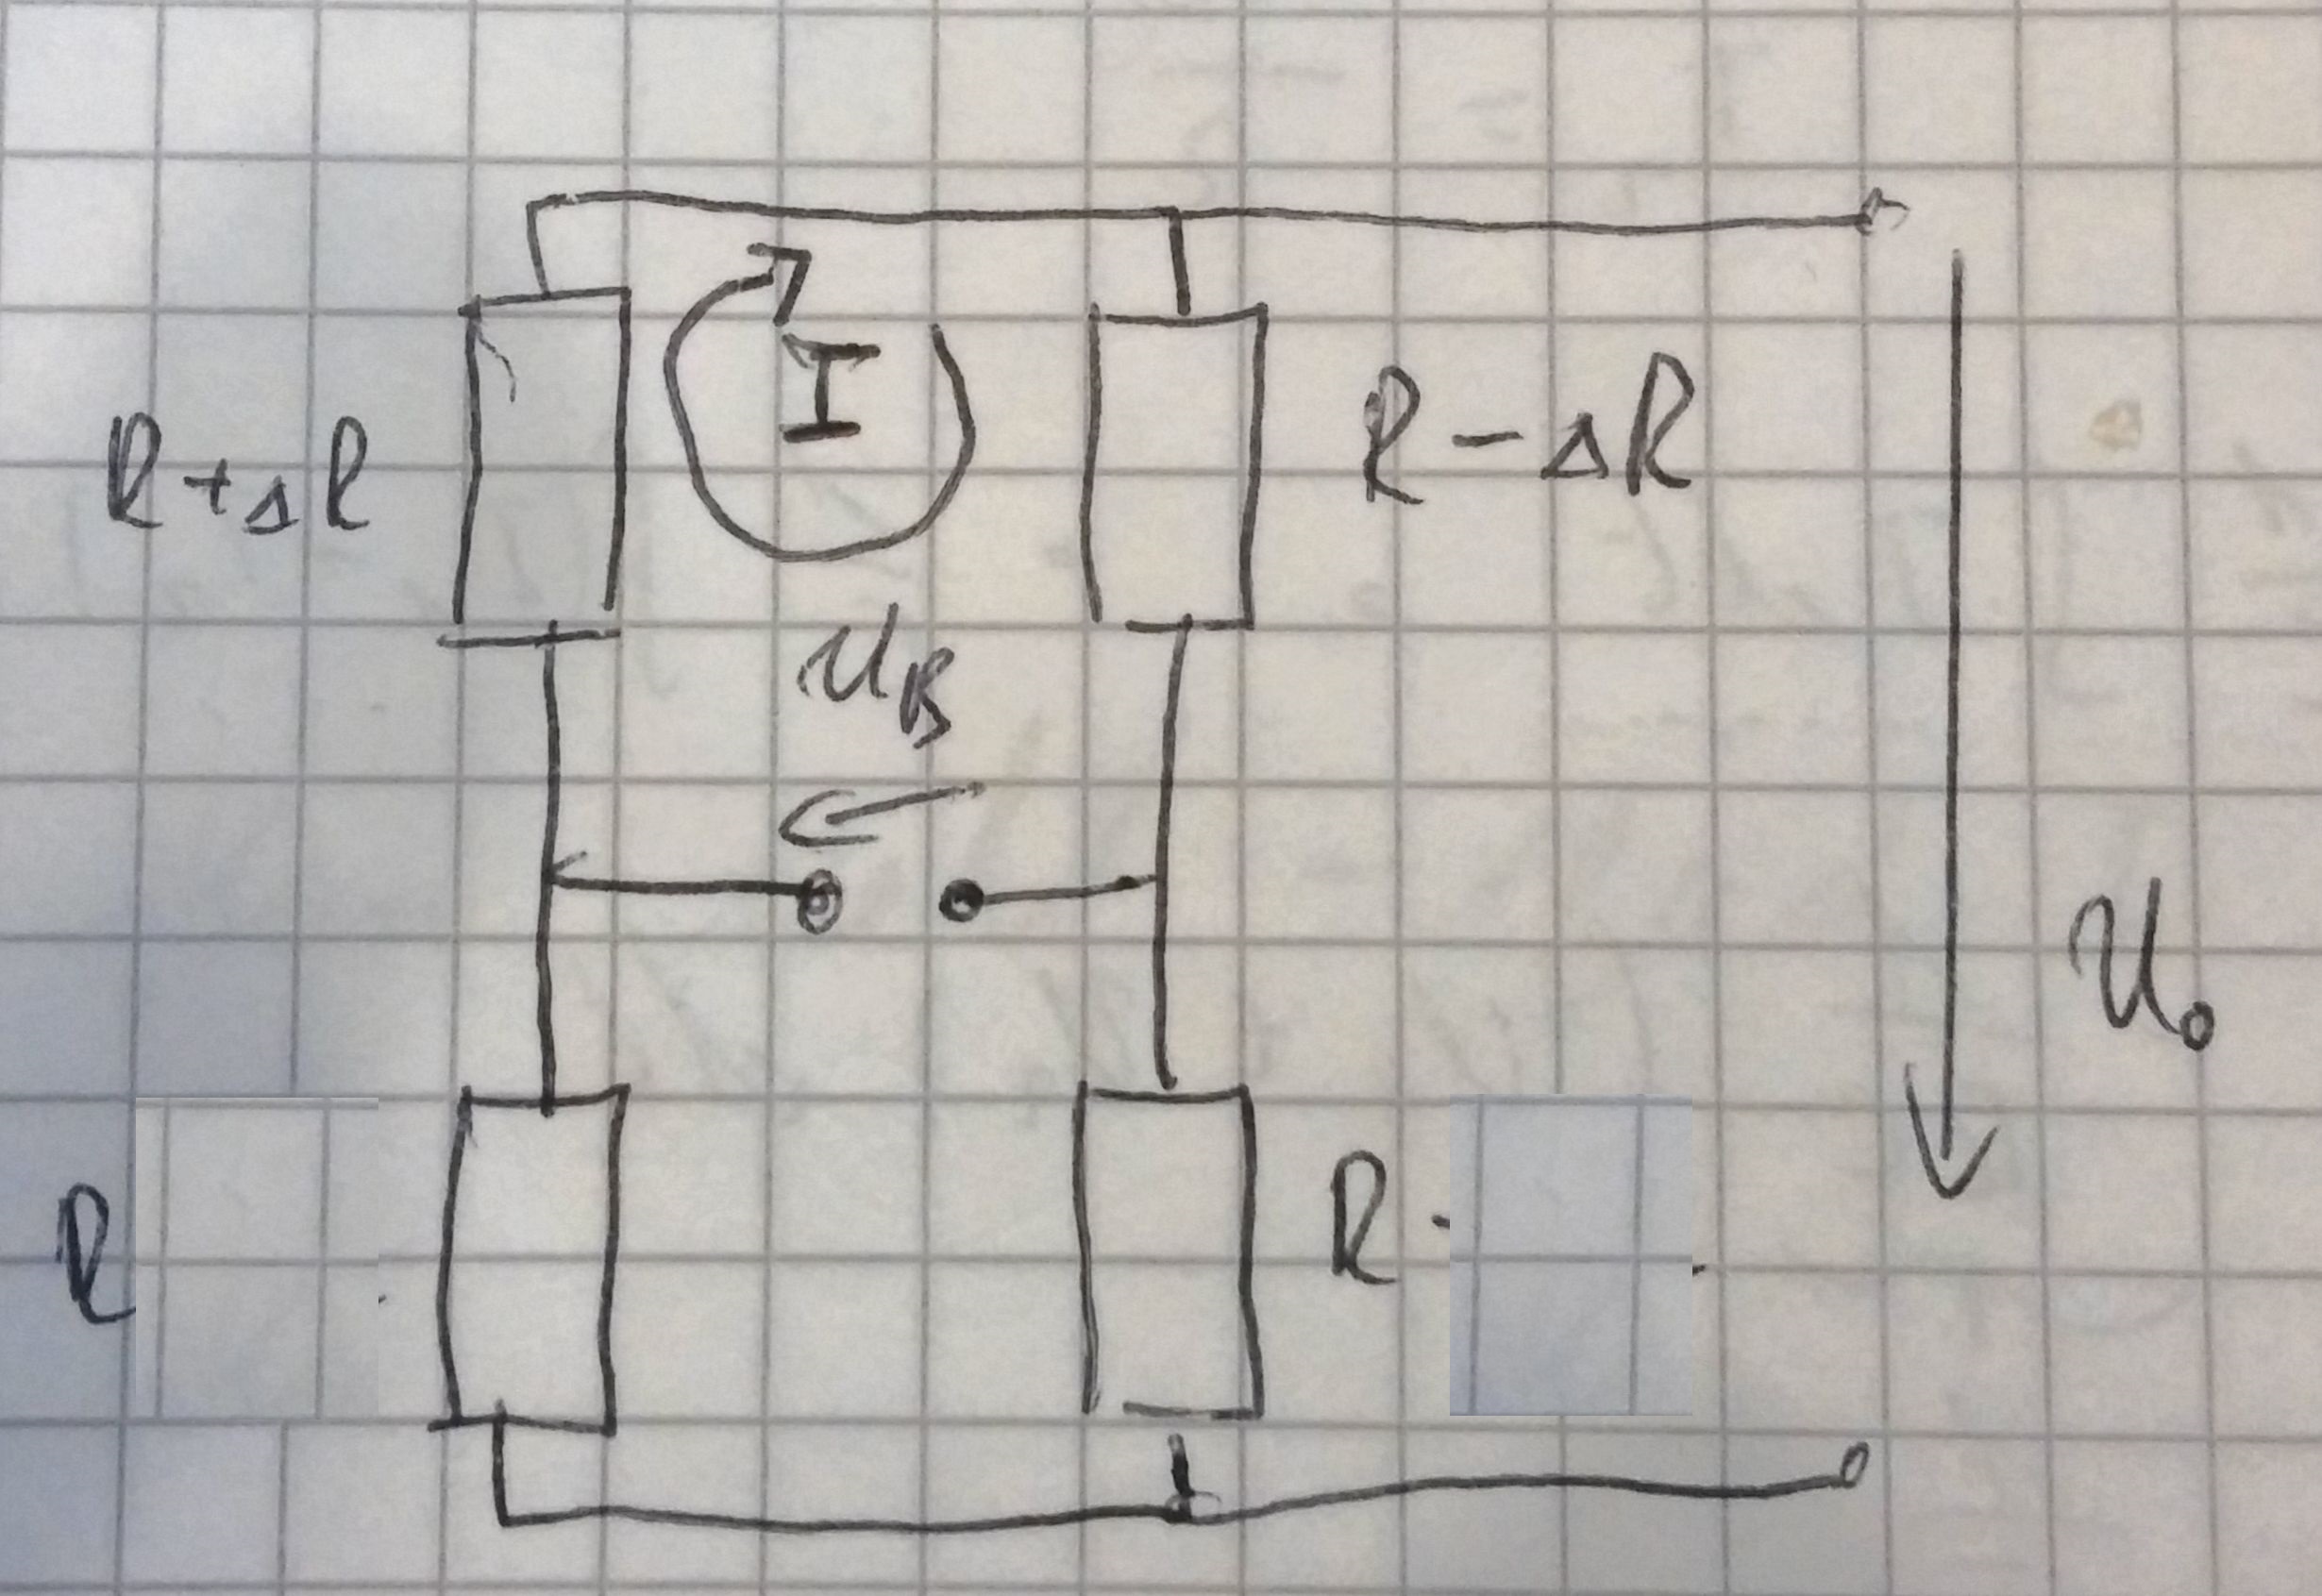 I
R + ΔR
R - ΔR
U_B
U_0
R
R -